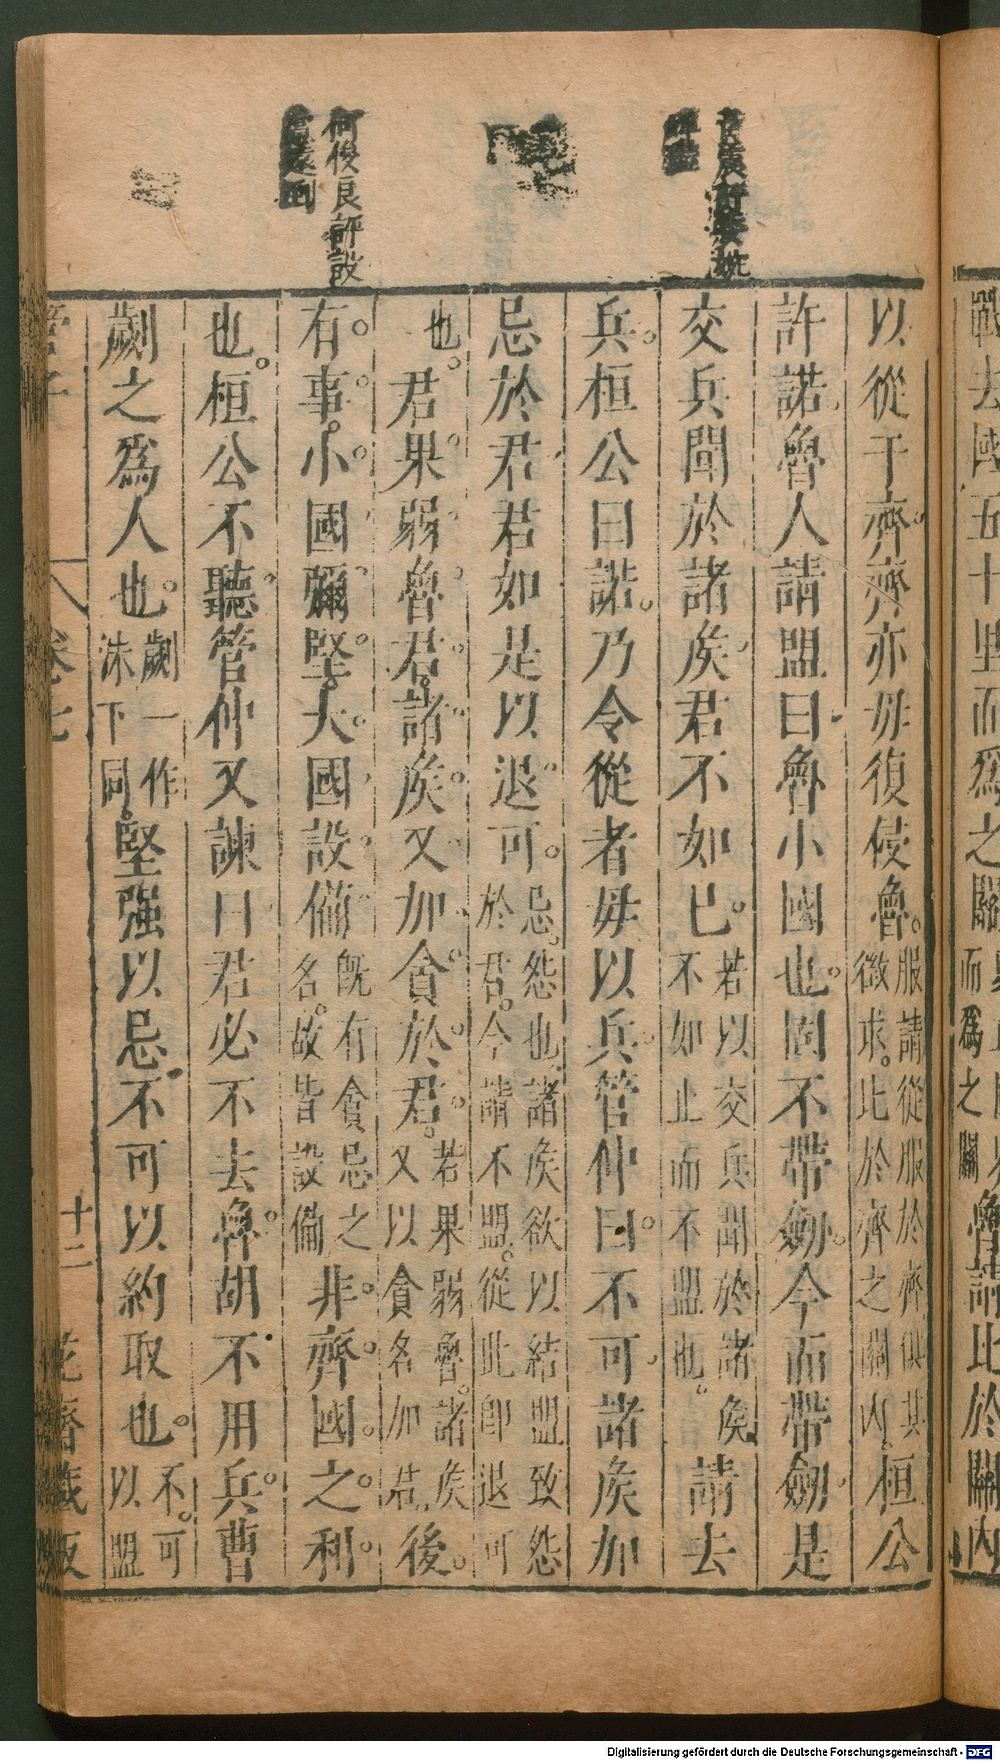 戰去國五十里而爲之關
而爲之關
魯請比於關內
以從于齊齊亦毋復侵魯。服請從服於齊供其徵求。比於齊之關內。桓公
許諾魯人請盟曰魯小國也固不帶劒。今而帶劒是
交兵聞於諸矦君不如已。若以交兵聞於諸矦不如止而不盟也。請去
兵。桓公曰諾。乃令從者毋以兵。管仲曰。不可諸矦加
忌於君君如是以退可。忌。怨也諸矦欲以結盟致怨於君。今請不盟。從此卽退可
也。君果弱魯君。諸矦又加貪於君。若果弱魯。諸矦又以貪名加君後。
有事。小國彌堅。大國設備旣有貪忌之名。故皆設備非齊國之利。
也。桓公不聽管仲又諫曰君必不去魯。胡不用兵。曹
劌之爲人也。劌一作沬下同。堅强以忌不可以約取也。不。可以盟
管子 卷七 十二 花齋藏版
何俊良評設
Digitalisierung gefördert durch die Deutsche Forschungsgemeinschaft - DFG